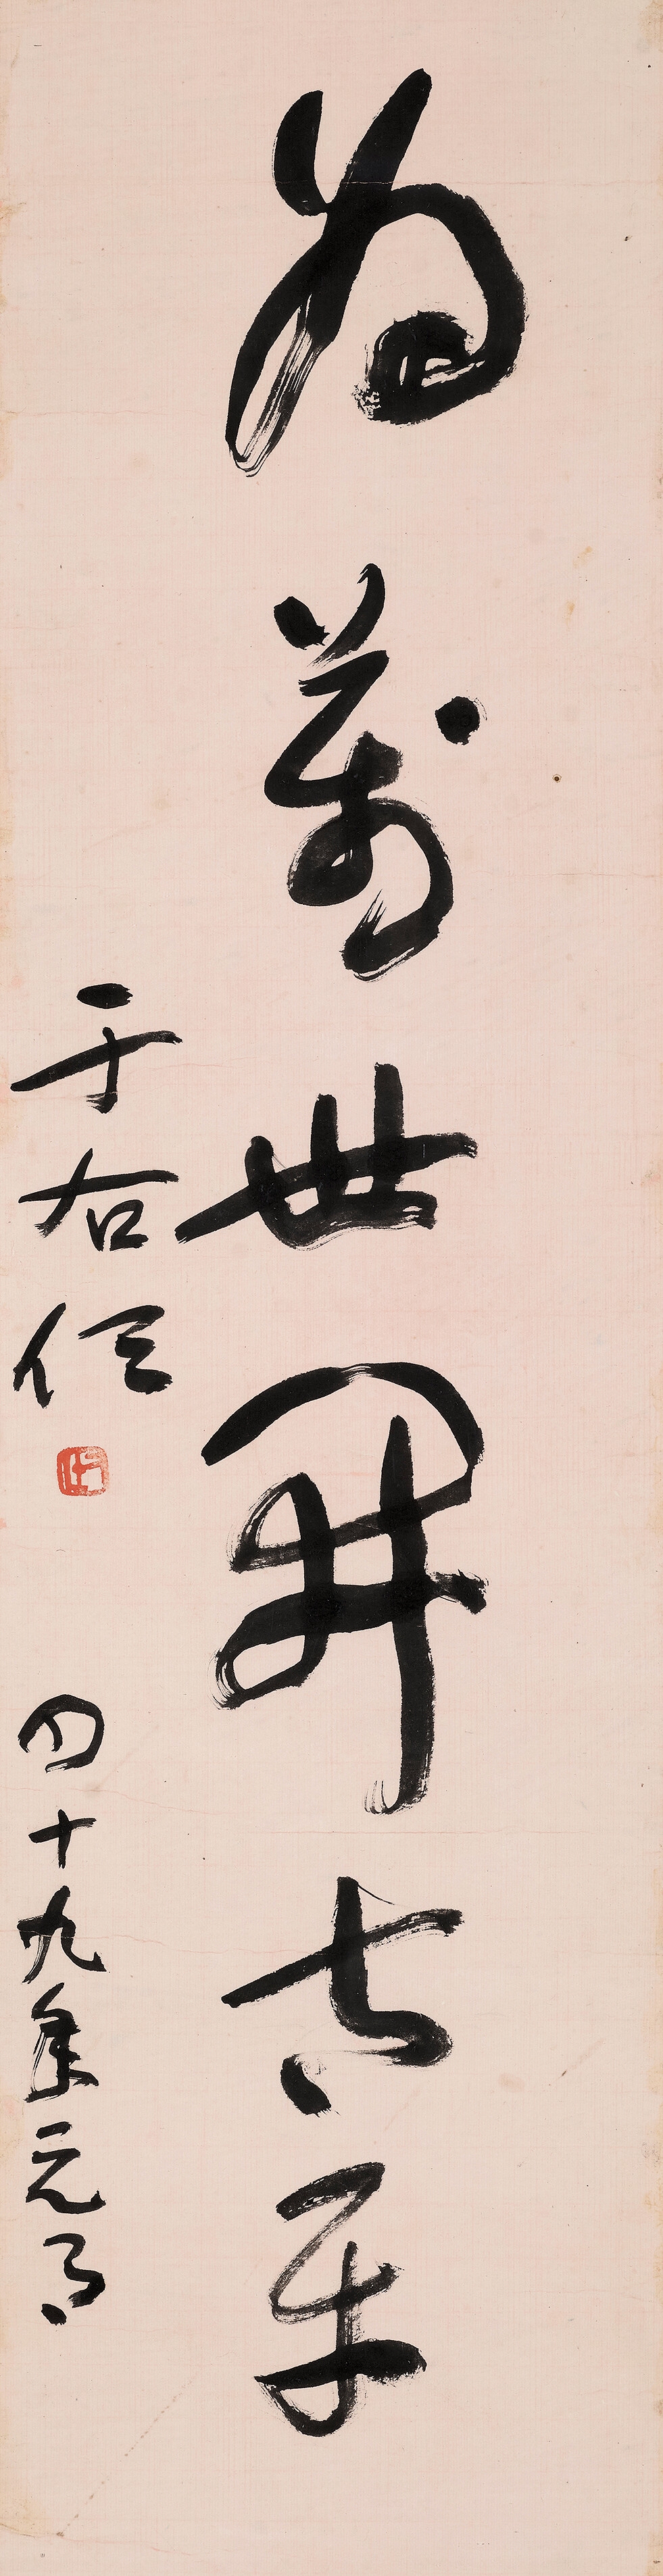 為萬世開太平
于右任
四十九年元月